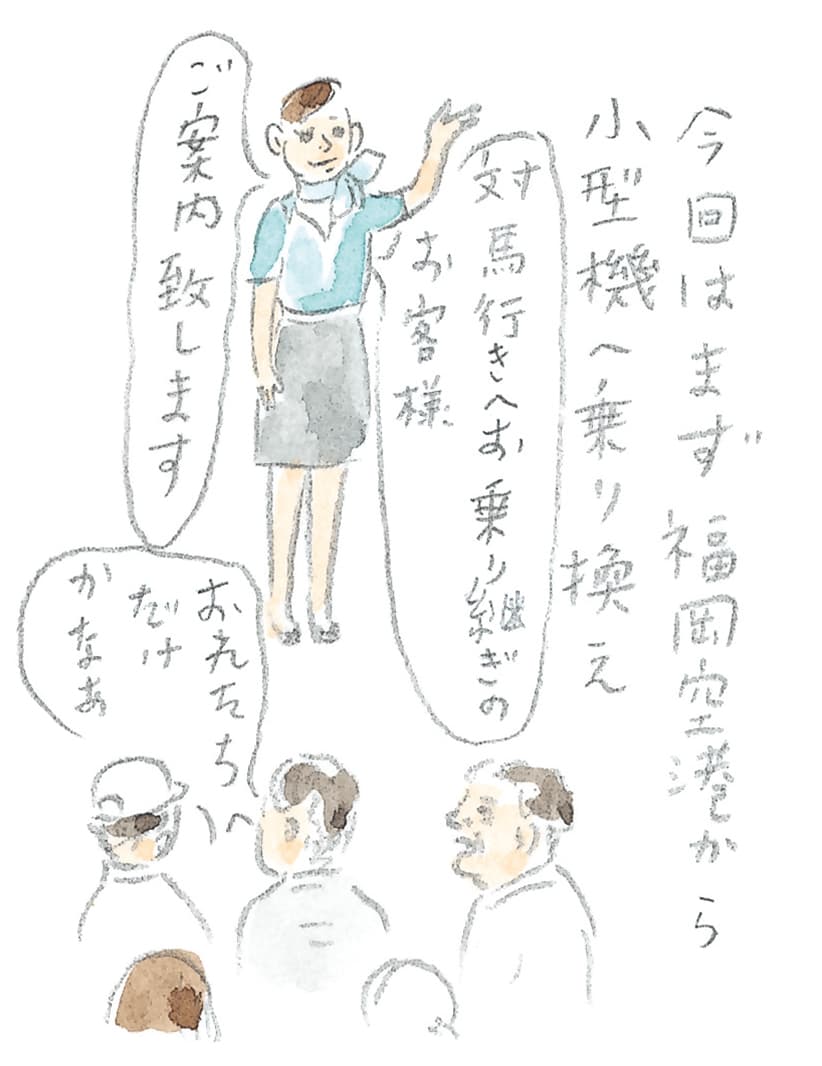 今回はまず福岡空港から
小型機へ乗り換え
対馬行きへお乗り継ぎの
お客様
ご案内致します
おれたち
だけ
かなぁ